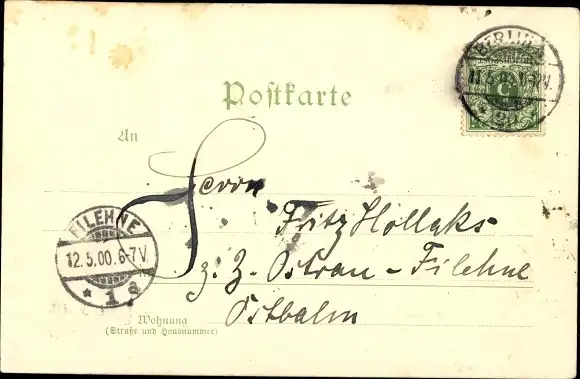 BERLIN
Postkarte
An
Herrn
Fritz Hollaks
FILEHNE
12.5.00.6-7V.
* 1 a
z. Z. Ostrau - Filehne
Ostbahn
Wohnung
(Straße und Hausnummer)